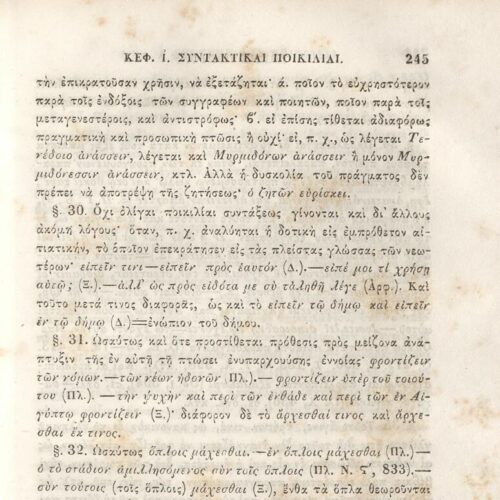 ΚΕΦ. Ι. ΣΥΝΤΑΚΤΙΚΑΙ ΠΟΙΚΙΛΙΑΙ. 245
τὴν ἐπικρατοῦσαν χρῆσιν, νὰ ἐξετάζηται· ά. ποῖον τὸ εὐχρηστότερον
παρὰ τοῖς ἐνδόξοις τῶν συγγραφέων καὶ ποιητῶν, ποῖον παρὰ τοῖς
μεταγενεστέροις, καὶ ἀντιστρόφως· ϐ́. εἰ ἐπίσης τίθεται ἀδιαφόρως
πραγματικὴ καὶ προσωπικὴ πτῶσις ἢ οὐχί· εἰ, π. χ., ὡς λέγεται Τε-
νέδοιο ἀνάσσειν, λέγεται καὶ Μυρμιδόνων ἀνάσσειν ἢ μόνον Μυρ-
μιδόνεσσιν ἀνάσσειν, κτλ. Ἀλλὰ ἡ δυσκολία τοῦ πράγματος δὲν
πρέπει νὰ ἀποτρέψῃ τῆς ζητήσεως· ὁ ζητῶν εὑρίσκει.
§. 30. Ὄχι ὀλίγαι ποικιλίαι συντάξεως γίνονται καὶ δι᾽ ἄλλους
ἀκόμη λόγους· ὅταν, π. χ. ἀναλύηται ἡ δοτικὴ εἰς ἐμπρόθετον αἰ-
τιατικὴν, τὸ ὁποῖον ἐπεκράτησεν εἰς τὰς πλείστας γλώσσας τῶν νεω-
τέρων· εἰπεῖν τινι—εἰπεῖν πρὸς ἑαυτόν (Δ.).—εἰπέ μοι τί χρήσῃ
αὐτῷ; (Ξ.).—ἀλλ᾽ ὡς πρὸς εἰδότα με σὺ τἀληθῆ λέγε (Ἀρφ.). Καὶ
τοῦτο μετά τινος διαφορᾶς, ὡς καὶ τὸ εἰπεῖν τῷ δήμῳ καὶ εἰπεῖν
ἐν τῷ δήμῳ (Δ.)=ἐνώπιον τοῦ δήμου.
§. 31. Ὡσαύτως καὶ ὅτε προστίθεται πρόθεσις πρὸς μείζονα ἀνά-
πτυξιν τῆς ἐν αὐτῇ τῇ πτώσει ἐνυπαρχούσης ἐννοίας· φροντίζειν
τῶν νόμων.—τῶν νέων ἡδονῶν (Πλ.).— φροντίζειν ὑπὲρ τοῦ τοιού-
του (Πλ.). — τὴν ψυχὴν καὶ περὶ τῶν ἐνθάδε καὶ περὶ τῶν ἐν Αἰ-
γύπτῳ φροντίζειν (Ξ.)· διάφορον δὲ τὸ ἄρχεσθαί τινος καὶ ἄρχε-
σθαι ἔκ τινος.
§. 32. Ὡσαύτως ὅπλοις μάχεσθαι.—ἐν ὅπλοις μάχεσθαι (Πλ.)—
ὁ τὸ στάδιον ἁμιλλησόμενος σὺν τοῖς ὅπλοις (Πλ. Ν. ϛ́, 833).—
σὺν τούτοις (τοῖς ὅπλοις) μάχεσθαι (Ξ.), ἔνθα τὰ ὅπλα θεωροῦνται